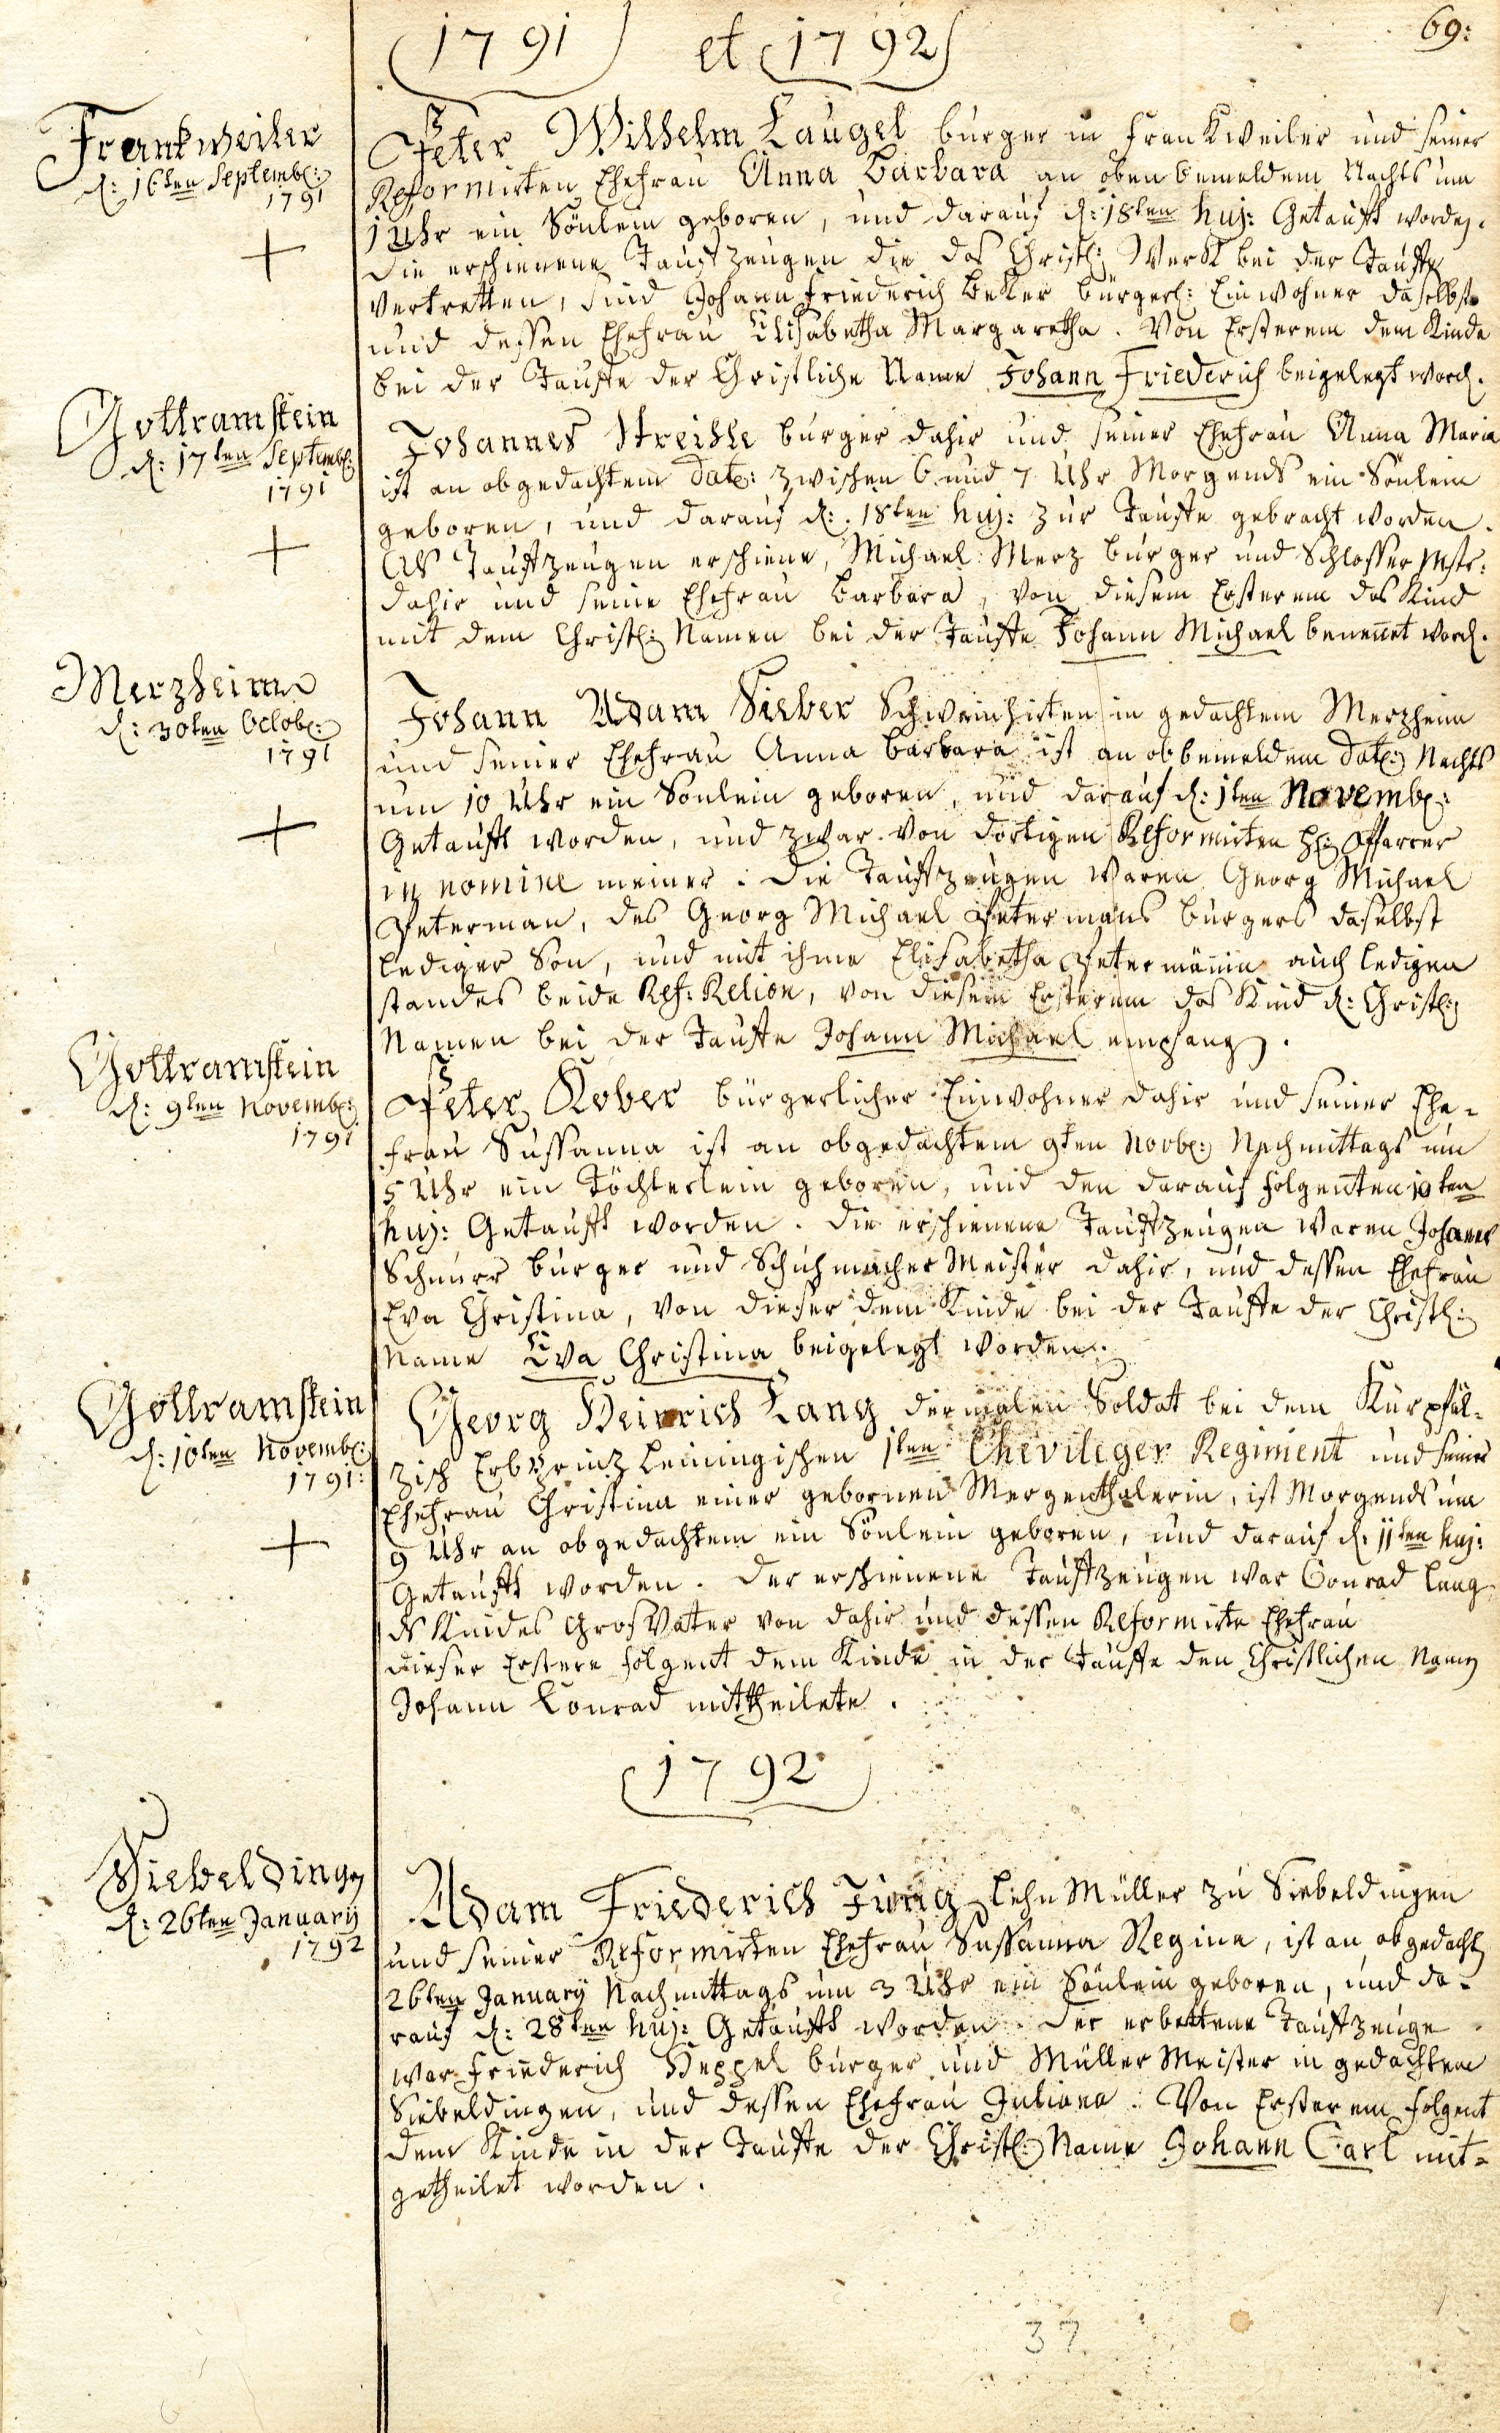 1791 et 1792
69:
Frankweiler
d: 16ten Septembr:
1791
Peter Wilhelm Laugel burger in Frankweiler und seiner
Reformirten Ehefrau Anna Barbara an oben bemeldem Nachts um
1 Uhr ein Sönlein geboren, und darauf d: 18ten huj: Getauft worden.
Die erschienene Taufzeugen die das Christl: Werk bei der Tauffe
vertretten, sind Johann Friederich Beker bürgerl: Einwohner daselbst
und dessen Ehefrau Elisabetha Margaretha. Von Ersterem dem Kinde
bei der Tauffe der Christliche Name Johann Friederich beigelegt word.
Gottramstein
d: 17ten Septembr:
1791
Johannes Streihle burger dahir und seiner Ehefrau Anna Maria
ist an obgedachtem Dat: zwischen 6 und 7 Uhr Morgends ein Sönlein
geboren, und darauf d: 18ten huj: zur Tauffe gebracht worden.
Als Tauffzeugen erschiene, Michael Merz burger und Schlosser Mstr:
dahir und seine Ehefrau Barbara, von diesem Ersterem das Kind
mit dem Christl: Namen bei der Tauffe Johann Michael benennet word.
Merzheim
d: 30ten Octobr:
1791
Johann Adam Sieber Schweinhirten in gedachtem Merzheim
und seiner Ehefrau Anna Barbara ist an obbemeldem Dat: Nachts
um 10 Uhr ein Sönlein geboren, und darauf d: 1ten Novembr:
Getaufft worden, und zwar von dortigen Reformirten H: Pfarrer
in nomine meiner. Die Tauffzeugen waren Georg Michael
Peterman, des Georg Michael Petermans burgers daselbst
lediger Son, und mit ihme Elisabetha Petermännin auch ledigen
standes beide Ref: Relion, von diesem Ersterem das Kind d: Christl:
Namen bei der Tauffe Johann Michael empfang.
Gottramstein
d: 9ten Novembr:
1791
Peter Kober bürgerlicher Einwohner dahir und seiner Ehe-
frau Sussanna ist an obgedachtem 9ten Novbr: Nachmittags um
5 Uhr ein Töchterlein geboren, und den darauf folgenten 10ten
huj: Getaufft worden. Die erschienene Tauffzeugen waren Johanes
Schnurr burger und Schuhmacher Meister dahir, und dessen Ehefrau
Eva Christina, von dieser dem Kinde bei der Tauffe der Christl:
Name Eva Christina beigelegt worden.
Gottramstein
d: 10ten Novembr:
1791:
Georg Heinrich Lang dermalen Soldat bei dem Kurpfäl-
zisch Erbprinz Leiningischen 1ten Chevileger Regiment und seiner
Ehefrau Christina einer gebornen Mergenthalerin, ist Morgends um
9 Uhr an obgedachtem ein Sönlein geboren, und darauf d: 11ten huj:
Getaufft worden. Der erschienene Tauffzeugen war Conrad Lang
ds Kindes Gros Vater von dahir und dessen Reformirte Ehefrau
dieser Erstere folgent dem Kinde in der Tauffe den Christlichen Namen
Johann Conrad mittheilete.
1792
Siebeldingen
d: 26ten January
1792
Adam Friederich Jung Lehn Müller zu Siebeldingen
und seiner Reformirten Ehefrau Sussanna Regina, ist an obgedacht
26ten January Nachmittags um 3 Uhr ein Sönlein geboren, und da-
rauf d: 28ten huj: Getaufft worden. Der erbettene Tauffzeuge
war Friederich Heppel burger und Müller Meister in gedachtem
Siebeldingen, und dessen Ehefrau Juliana. Von Ersterem folgent
dem Kinde in der Tauffe der Christl: Name Johann Carl mit-
getheilet worden.
37